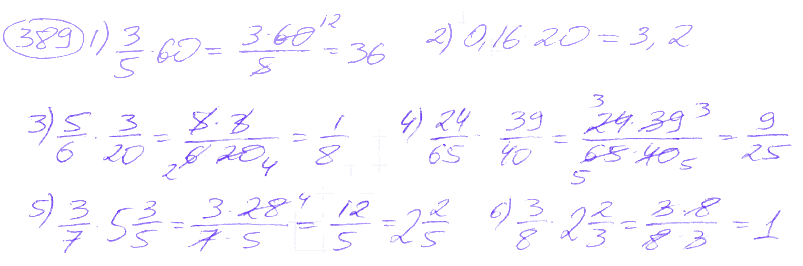 389 1) 3/5 · 60 = 3·60/5 12 = 36 2) 0,16 20 = 3,2
3) 5/6 · 3/20 = 5·3/6·20 2 4 = 1/8 4) 24/65 · 39/40 = 24·39/65·40 3 3 5 5 = 9/25
5) 3/7 · 5 3/5 = 3·28/7·5 4 = 12/5 = 2 2/5 6) 3/8 · 2 2/3 = 3·8/8·3 = 1